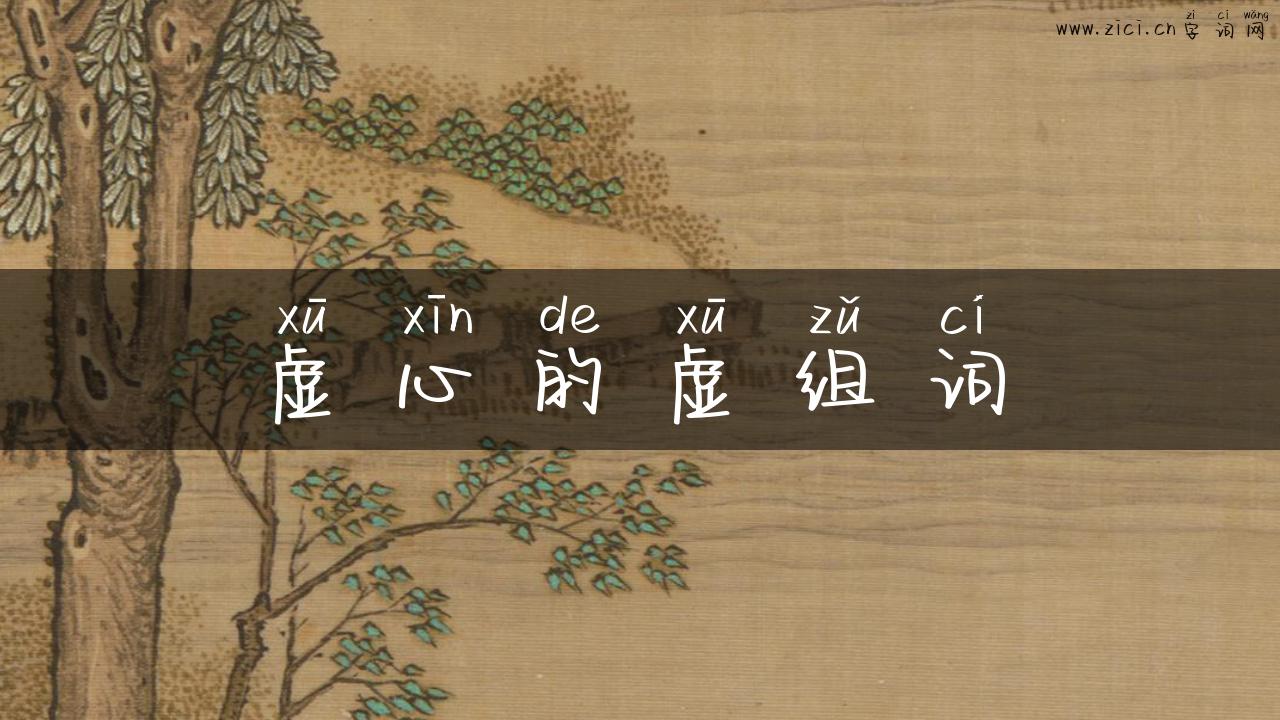 zì cí wǎng
www.zici.cn 字词网
xū xīn de xū zǔ cí
虚心的虚组词